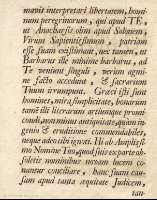 mavit interpretari libertatem, homi-
num peregrinorum, qui apud TE,
ut Anacharsis olim apud Solonem,
Virum Sapientissimum, patriam
esse suam existimant, nec tamen, ut
Barbarus ille minime barbarus, ad
Te veniunt singuli, verùm agmi-
ne facto accedunt, & sacrarium
Tuum irrumpunt. Graci isti sunt
homines, mira simplicitate, bonarum
tamen illi literarum artiumque promi-
condi, non minus antiquitate, quàm in-
genio & eruditione commendabiles,
neque adeo tibi ignoti. Hi ab Amplissi-
mo Nomine Tuo, quasi suis ex parte ob-
soletis nominibus novam lucem co-
nantur conciliare, hanc suam cau-
sam apud tanta æquitate Judicem,
tan-